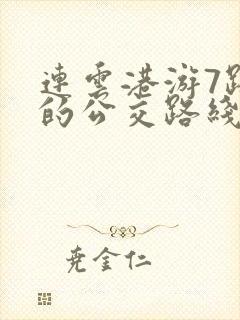 連雲港游7路
的公交路綫
尭金仁